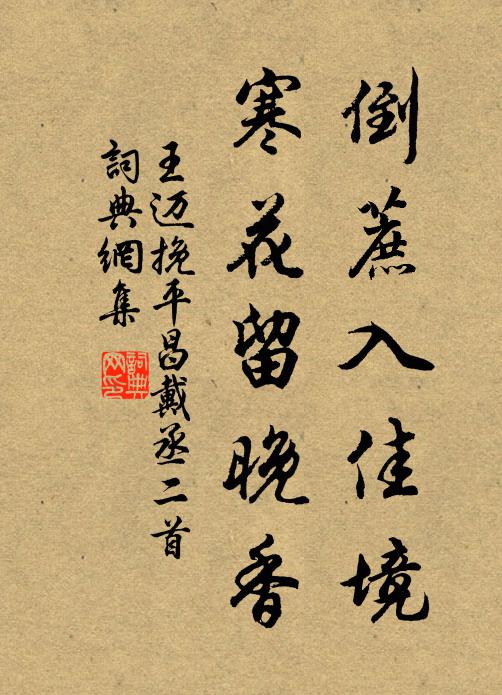 倒蔗入佳境
寒花留晚香
王迈挽平昌戴丞二首
詞典網集
詞典网印